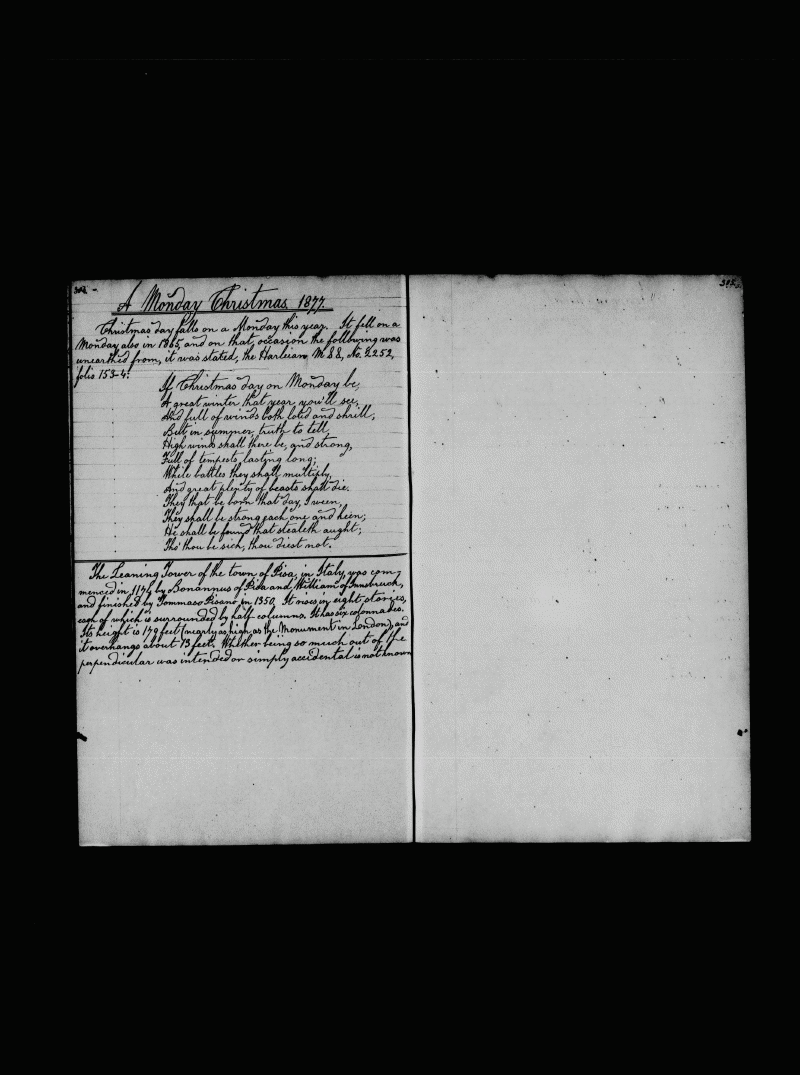 A Monday Christmas. 1877.
Christmas day falls on a Monday this year. It fell on a
Monday also in 1865, and on that occasion the following was
unearthed from, it was stated, the Harleian MSS, No. 2252,
folio 153-4:
If Christmas day on Monday be,
A great winter that year you'll see,
And full of winds both loud and shrill;
But in summer, truth to tell,
High winds shall there be, and strong,
Full of tempests, lasting long;
While battles they shall multiply,
And great plenty of beasts shall die.
They that be born that day, I ween,
They shall be strong each one and keen;
He shall be found that stealeth aught;
Tho' thou be sick, thou diest not.
The Leaning Tower of the town of Pisa, in Italy, was com-
menced in 1174 by Bonannus of Pisa and William of Innsbruck,
and finished by Tommaso Pisano in 1350. It rises in eight stories,
each of which is surrounded by half columns. It has six colonnades.
Its height is 179 feet (nearly as high as the Monument in London), and
it overhangs about 13 feet. Whether being so much out of the
perpendicular was intended or simply accidental is not known